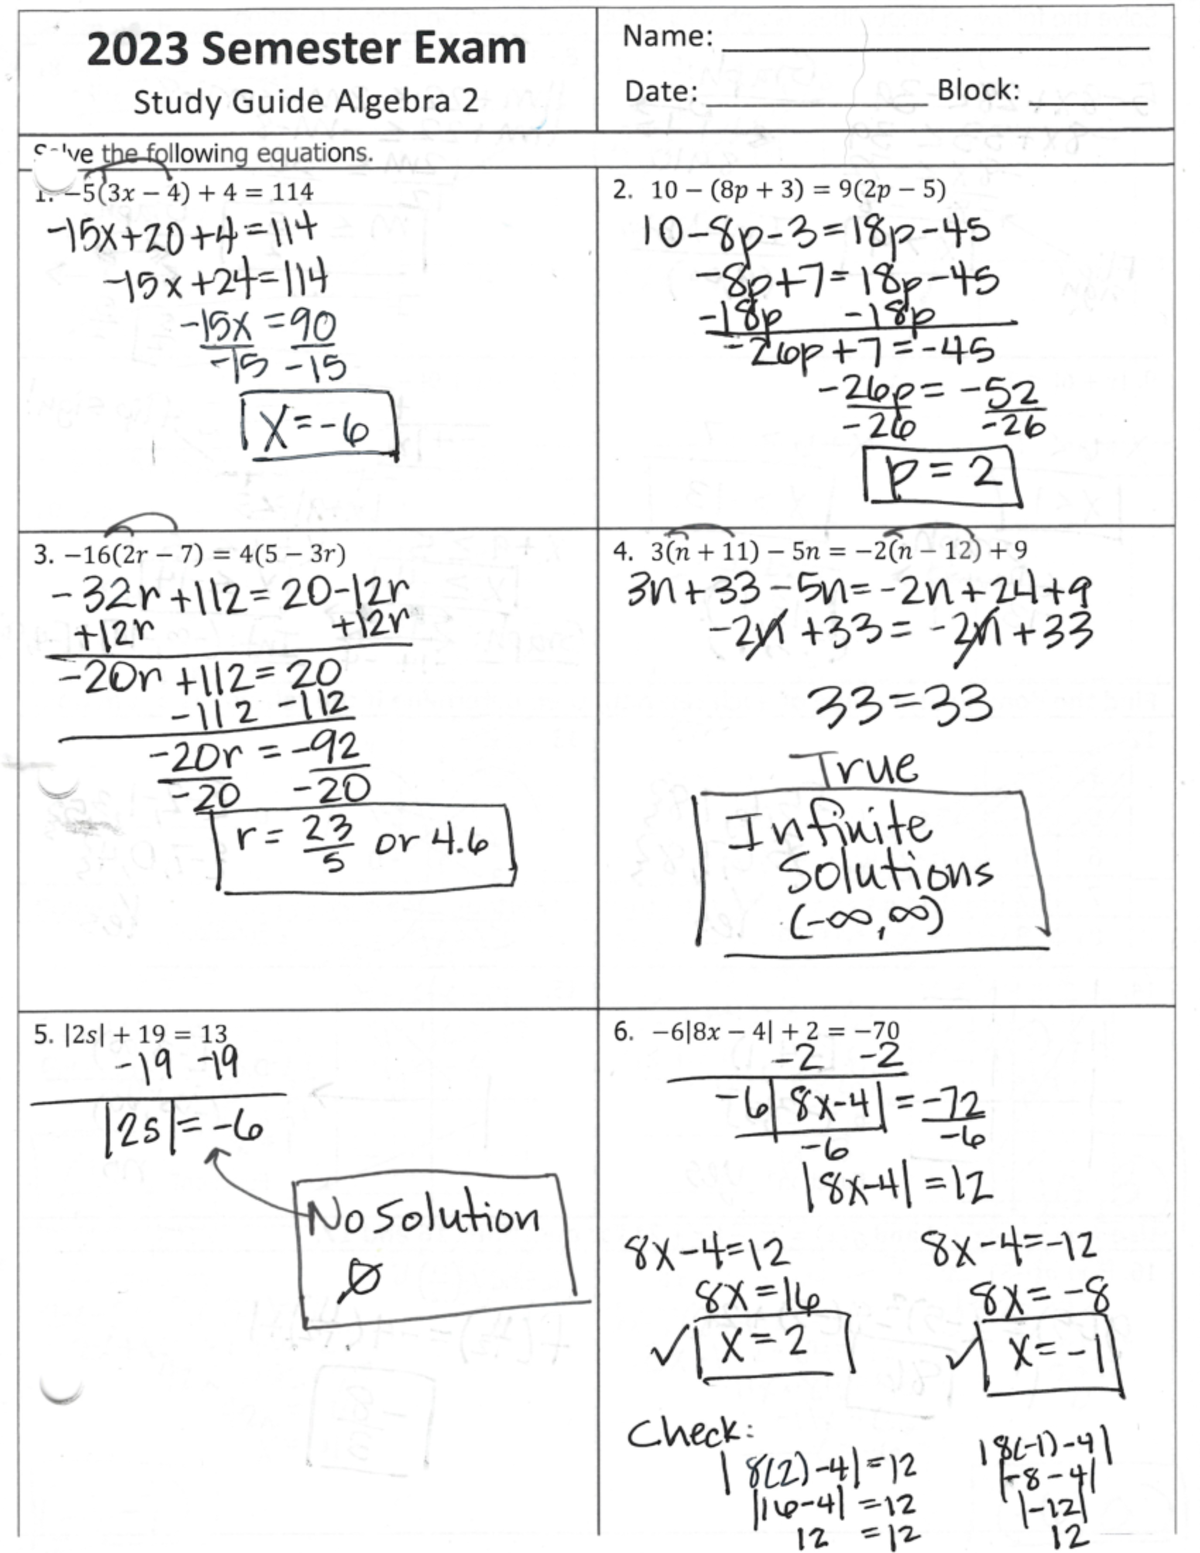 2023 Semester Exam
Study Guide Algebra 2
Name: ____________
Date: ____________ Block: ____________
Solve the following equations.
1. −5(3x − 4) + 4 = 114
-15x+20+4=114
-15x+24=114
-15x=90
-15 -15
x=-6
2. 10 − (8p + 3) = 9(2p − 5)
10-8p-3=18p-45
-8p+7=18p-45
-18p -18p
-26p+7=-45
-26p=-52
-26 -26
p=2
3. −16(2r − 7) = 4(5 − 3r)
-32r+112=20-12r
+12r +12r
-20r+112=20
-112 -112
-20r=-92
-20 -20
r= 23/5 or 4.6
4. 3(n + 11) − 5n = −2(n − 12) + 9
3n+33-5n=-2n+24+9
-2n+33=-2n+33
33=33
True
Infinite
Solutions
(-∞,∞)
5. |2s| + 19 = 13
-19 -19
|2s|=-6
No Solution
∅
6. −6|8x − 4| + 2 = −70
-2 -2
-6|8x-4|=-72
-6 -6
|8x-4|=12
8x-4=12
8x=16
✓ x=2
8x-4=-12
8x=-8
✓ x=-1
Check:
|8(2)-4|=12
|16-4|=12
12 =12
|8(-1)-4|
|-8-4|
|-12|
12